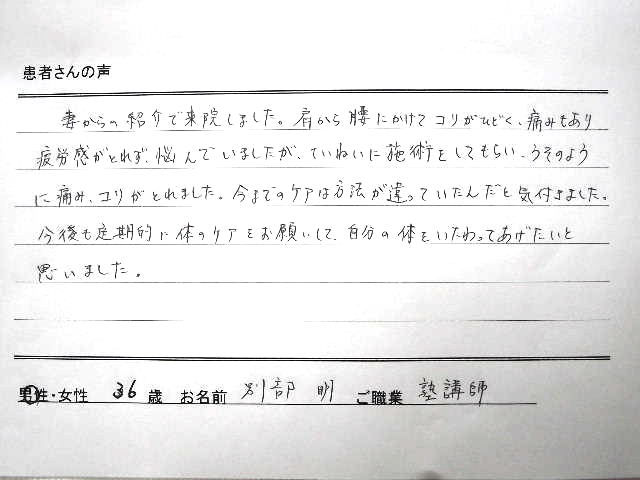 患者さんの声
妻からの紹介で来院しました。肩から腰にかけてコリがひどく、痛みもあり
疲労感がとれず、悩んでいましたが、ていねいに施術をしてもらい、うそのよう
に痛み、コリがとれました。今までのケアは方法が違っていたんだと気付きました。
今後も定期的に体のケアをお願いして、自分の体をいたわってあげたいと
思いました。
男性・女性 36 歳 お名前 別部 明 ご職業 塾講師